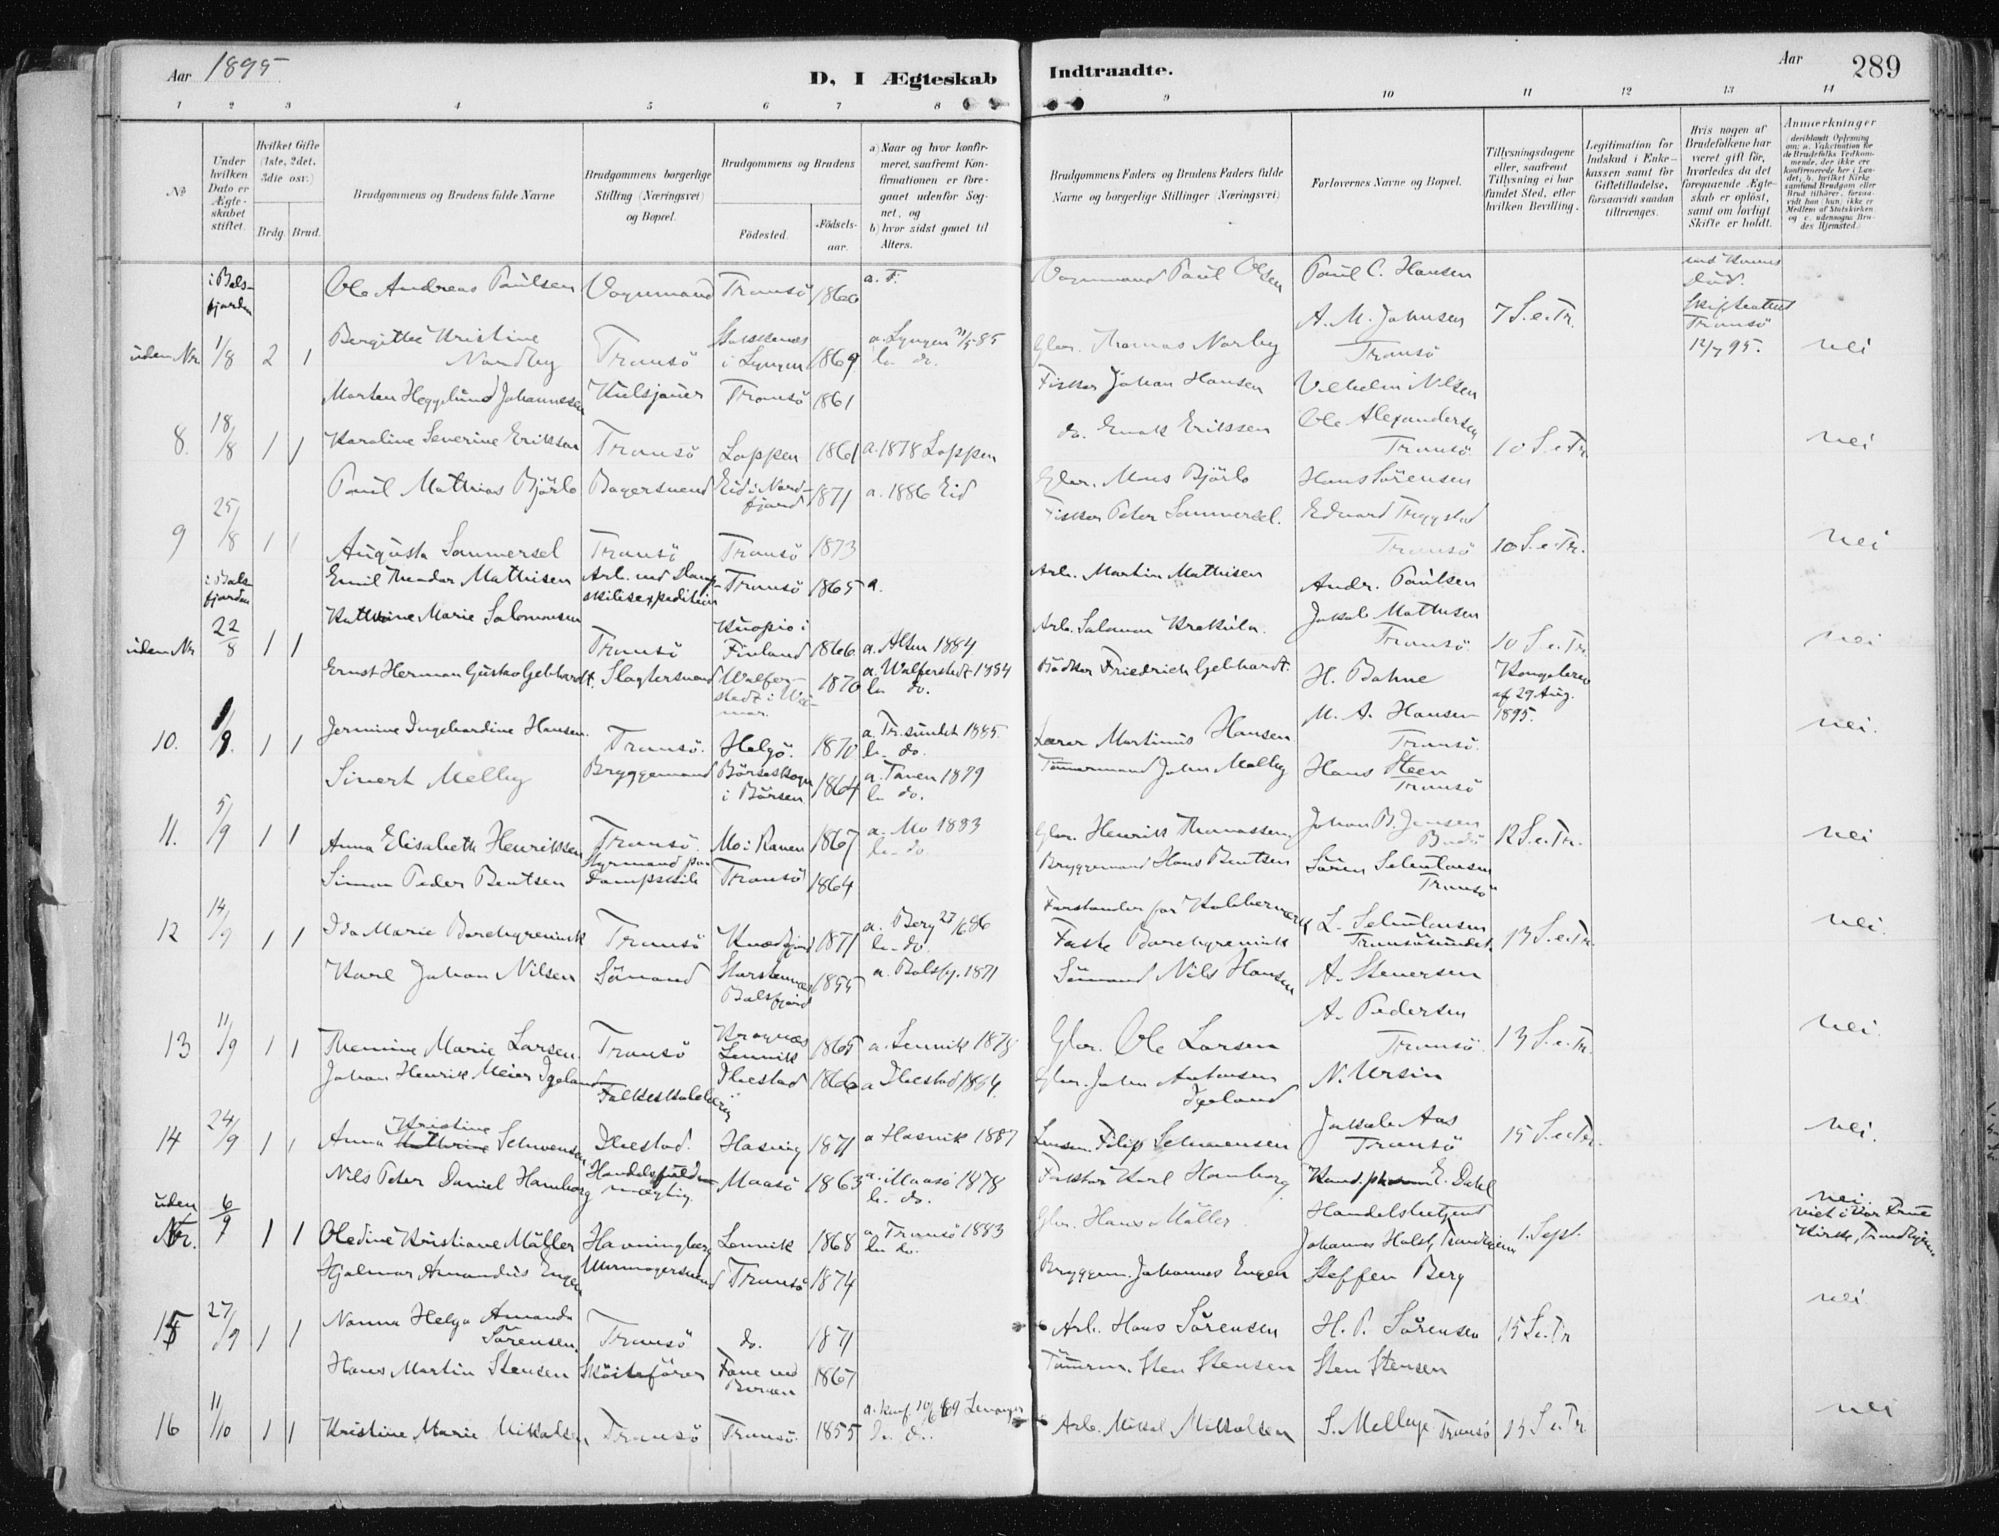 Aar 1895
D, I Ægteskab Indtraadte.
Aar 289
1 2 3 4 5 6 7 8 9 10 11 12 13 14
No
Under hvilken Dato er Ægteskabet stiftet.
Hvilket Gifte (1ste, 2det, 3die osv.)
Brdg. Brud.
Brudgommens og Brudens fulde Navne
Brudgommens borgerlige Stilling (Næringsvei) og Bopæl.
Brudgommens og Brudens
Födested. Födselsaar.
a) Naar og hvor konfirmeret, saafremt Konfirmationen er foregaaet udenfor Sognet, og
b) hvor sidst gaaet til Alters.
Brudgommens Faders og Brudens Faders fulde Navne og borgerlige Stillinger (Næringsvei)
Forlovernes Navne og Bopæl.
Tillysningsdagene eller, saafremt Tillysning ei har fundet Sted, efter hvilken Bevilling.
Legitimation for Indskud i Enkekassen samt for Giftetilladelse, forsaavidt saadan tiltrænges.
Hvis nogen af Brudefolkene har været gift för, hvorledes da det foregaaende Ægteskab er oplöst, samt om lovligt Skifte er holdt.
Anmærkninger
i Balsfjorden Ole Andreas Paulsen Vognmand Tromsö 1860 a. T. Vognmand Paul Olsen Paul C. Hansen
A. M. Johnsen 7 S.e.Tr. Skifteattest Tromsö 12/7 95.
uden Nr. 1/8 2 1 Bergitte Kristine Nordby Tromsö i Lyngen 1869 a. Lyngen b. do. Gbr. Thomas Norby Tromsö nei
Morten Heggelund Johannessen Kulsjauer Tromsö 1861 Fisker Johan Hansen Vilhelm Nilsen
8. 18/8 1 1 Karoline Severine Eriksen Tromsö Loppen 1861 a. 1878 Loppen do. Enok Erikssen Ole Alexandersen Tromsö 10 S.e.Tr. nei
Paul Mathias Björlo Bagersvend Eid i Nordfjord 1871 a. 1886 Eid Gbr. Mons Björlo Hans Sörensen
9 25/8 1 1 Augusta Sommersel Tromsö Tromsö 1873 Fisker Peter Sommersel. Edvard Tryggstad Tromsö 10 S.e.Tr. nei
i Balsfjorden Emil Theodor Mathisen Arb. ved Dampskibsexpedition Tromsö 1865 a. Arb. Martin Mathisen Andr. Paulsen
uden Nr 22/8 1 1 Kathrine Marie Salomonsen Tromsö Kuopio i Finland 1866 a. Alten 1884 Arb. Salomon Krekula. Jakob Mathisen Tromsö 10 S.e.Tr. nei
Ernst Herman Gustav Gebhardt. Slagtersvend Walferstedt i Weimar. 1870 a. Walferstedt 1884 b. do. Bödker Friedrich Gebhardt. H. Bahne Kongebrev af 29 Aug. 1895.
10. 1/9. 1 1 Jermine Ingebardine Hansen. Tromsö. Helgö. 1870 a. Tr.sundet 1885 b. do. Lærer Martinus Hansen M. A. Hansen Tromsö. nei.
Sivert Melby Bryggemand Börseskogn i Börsen 1864 a. Tanen 1879 b. do. Tömmermand John Melby Hans Steen Tromsö
11. 5/9 1 1 Anna Elisabeth Henriksen Tromsö. Mo i Ranen 1867 a. Mo 1883 b. do Gbr. Henrik Thomassen Johan B. Jensen Bodö 12 S.e.Tr. nei
Simon Peder Bentsen Styrmand paa Dampskib Tromsö 1864 Bryggemand Hans Bentsen Sören Schulensen Tromsö
12 14/9 1 1 Ida Marie Borchgrevink Tromsö Kvædfjord 1871 a. Berg 27/6 86 b. do. Forstander for Kobberværk Faste Borchgrevink L. Tromsösundet. 13 S.e.Tr. nei.
Karl Johan Nilsen Sömand Storstennæs Balsfjord 1855 a. Balsfj. 1871 Sömand Nils Hansen A. Stenersen
13 11/9 1 1 Themine Marie Larsen. Tromsö Kragnæs Lenvik 1865 a. Lenvik 1878 Gbr. Ole Larsen A. Pedersen Tromsö. 13 S.e.Tr. nei.
Johan Henrik Meier Igeland Ibestad 1866 a Ibestad 1884. Gbr. John Antonsen Igeland N. Ursin
14 24/9 1 1 Anna Kristine Ibestad. Hasvig 1871 a Hasvik 1887 Lensm. Filip Jakob Aas Tromsö 15 S.e.Tr. nei.
Nils Peter Daniel Hamborg Handelsfuldmægtig Maasö 1863 a. Maasö 1878 b. do. Faktor Karl Hamborg Kand. E. Dahl
uden Nr. 6/9 1 1 Oledine Kristiane Möller Havningberg Lenvik 1868 a. Tromsö 1883 b. do. Gbr. Hans Möller Handelsbetjent Johannes Holst, Trondhjem 1. Sept. nei. viet i Vor Frue Kirke, Trondhjem
Hjalmar Amandus Engen Urmagersvend Tromsö 1874 Bryggem. Johannes Engen Steffen Berg
15 27/9 1 1 Nanna Helga Amanda Sörensen. Tromsö do. 1871 Arb. Hans Sörensen H. P. Sörensen 15 S.e.Tr nei
Hans Martin Stensen Sköiteförer 1867 Tömrm. Sten Stensen Sten Stensen
16 11/10 1 1 Kristine Marie Mikkalsen Tromsö Tromsö. 1855 a. konf 10/6 69 b. do. Arb. Mikal Mikkalsen S. Mellbye Tromsö 15 S.e.Tr nei